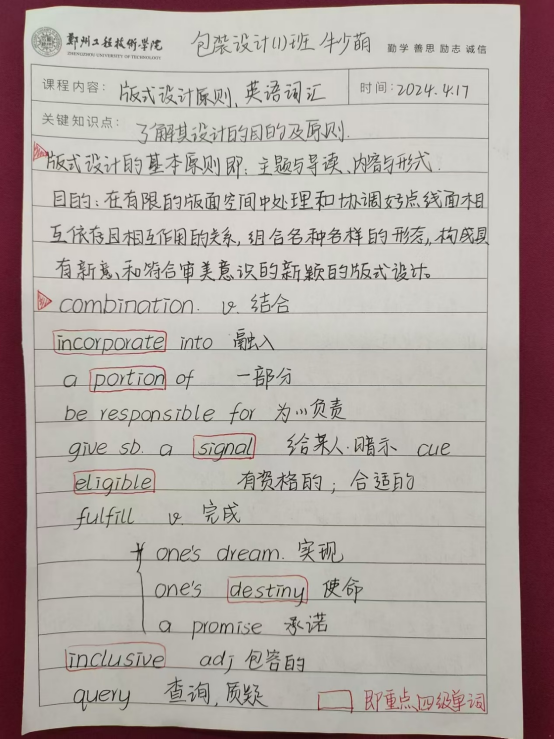 郑州工程技术学院 包装设计(1)班 牛少萌 勤学 善思 励志 诚信
ZHENGZHOU UNIVERSITY OF TECHNOLOGY
课程内容： 版式设计原则，英语词汇 时间：2024.4.17
关键知识点： 了解其设计的目的及原则.
版式设计的基本原则即：主题与导读、内容与形式.
目的：在有限的版面空间中处理和协调好点线面相
互依存且相互作用的关系，组合各种各样的形态，构成具
有新意、和符合审美意识的新颖的版式设计。
combination. v. 结合
incorporate into 融入
a portion of 一部分
be responsible for 为…负责
give sb. a signal 给某人.暗示 cue
eligible 有资格的；合适的
fulfill v. 完成
one's dream. 实现
one's destiny 使命
a promise 承诺
inclusive adj 包容的
query 查询，质疑
即重点四级单词